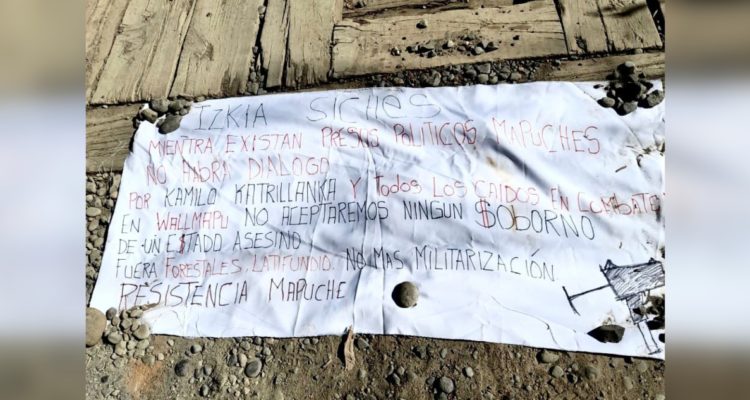 IZKIA SICHES
MIENTRA EXISTAN PRESUS POLITICOS MAPUCHES
NO AHORA DIALOGO
POR KAMILO KATRILLANKA Y TODOS LOS CAIDOS EN COMBATE
EN WALLMAPU NO ACEPTAREMOS NINGUN $OBORNO
DE UN E$TADO ASESINO
FUERA FORESTALES, LATIFUNDIO. NO MAS MILITARIZACIÓN
RESISTENCIA MAPUCHE